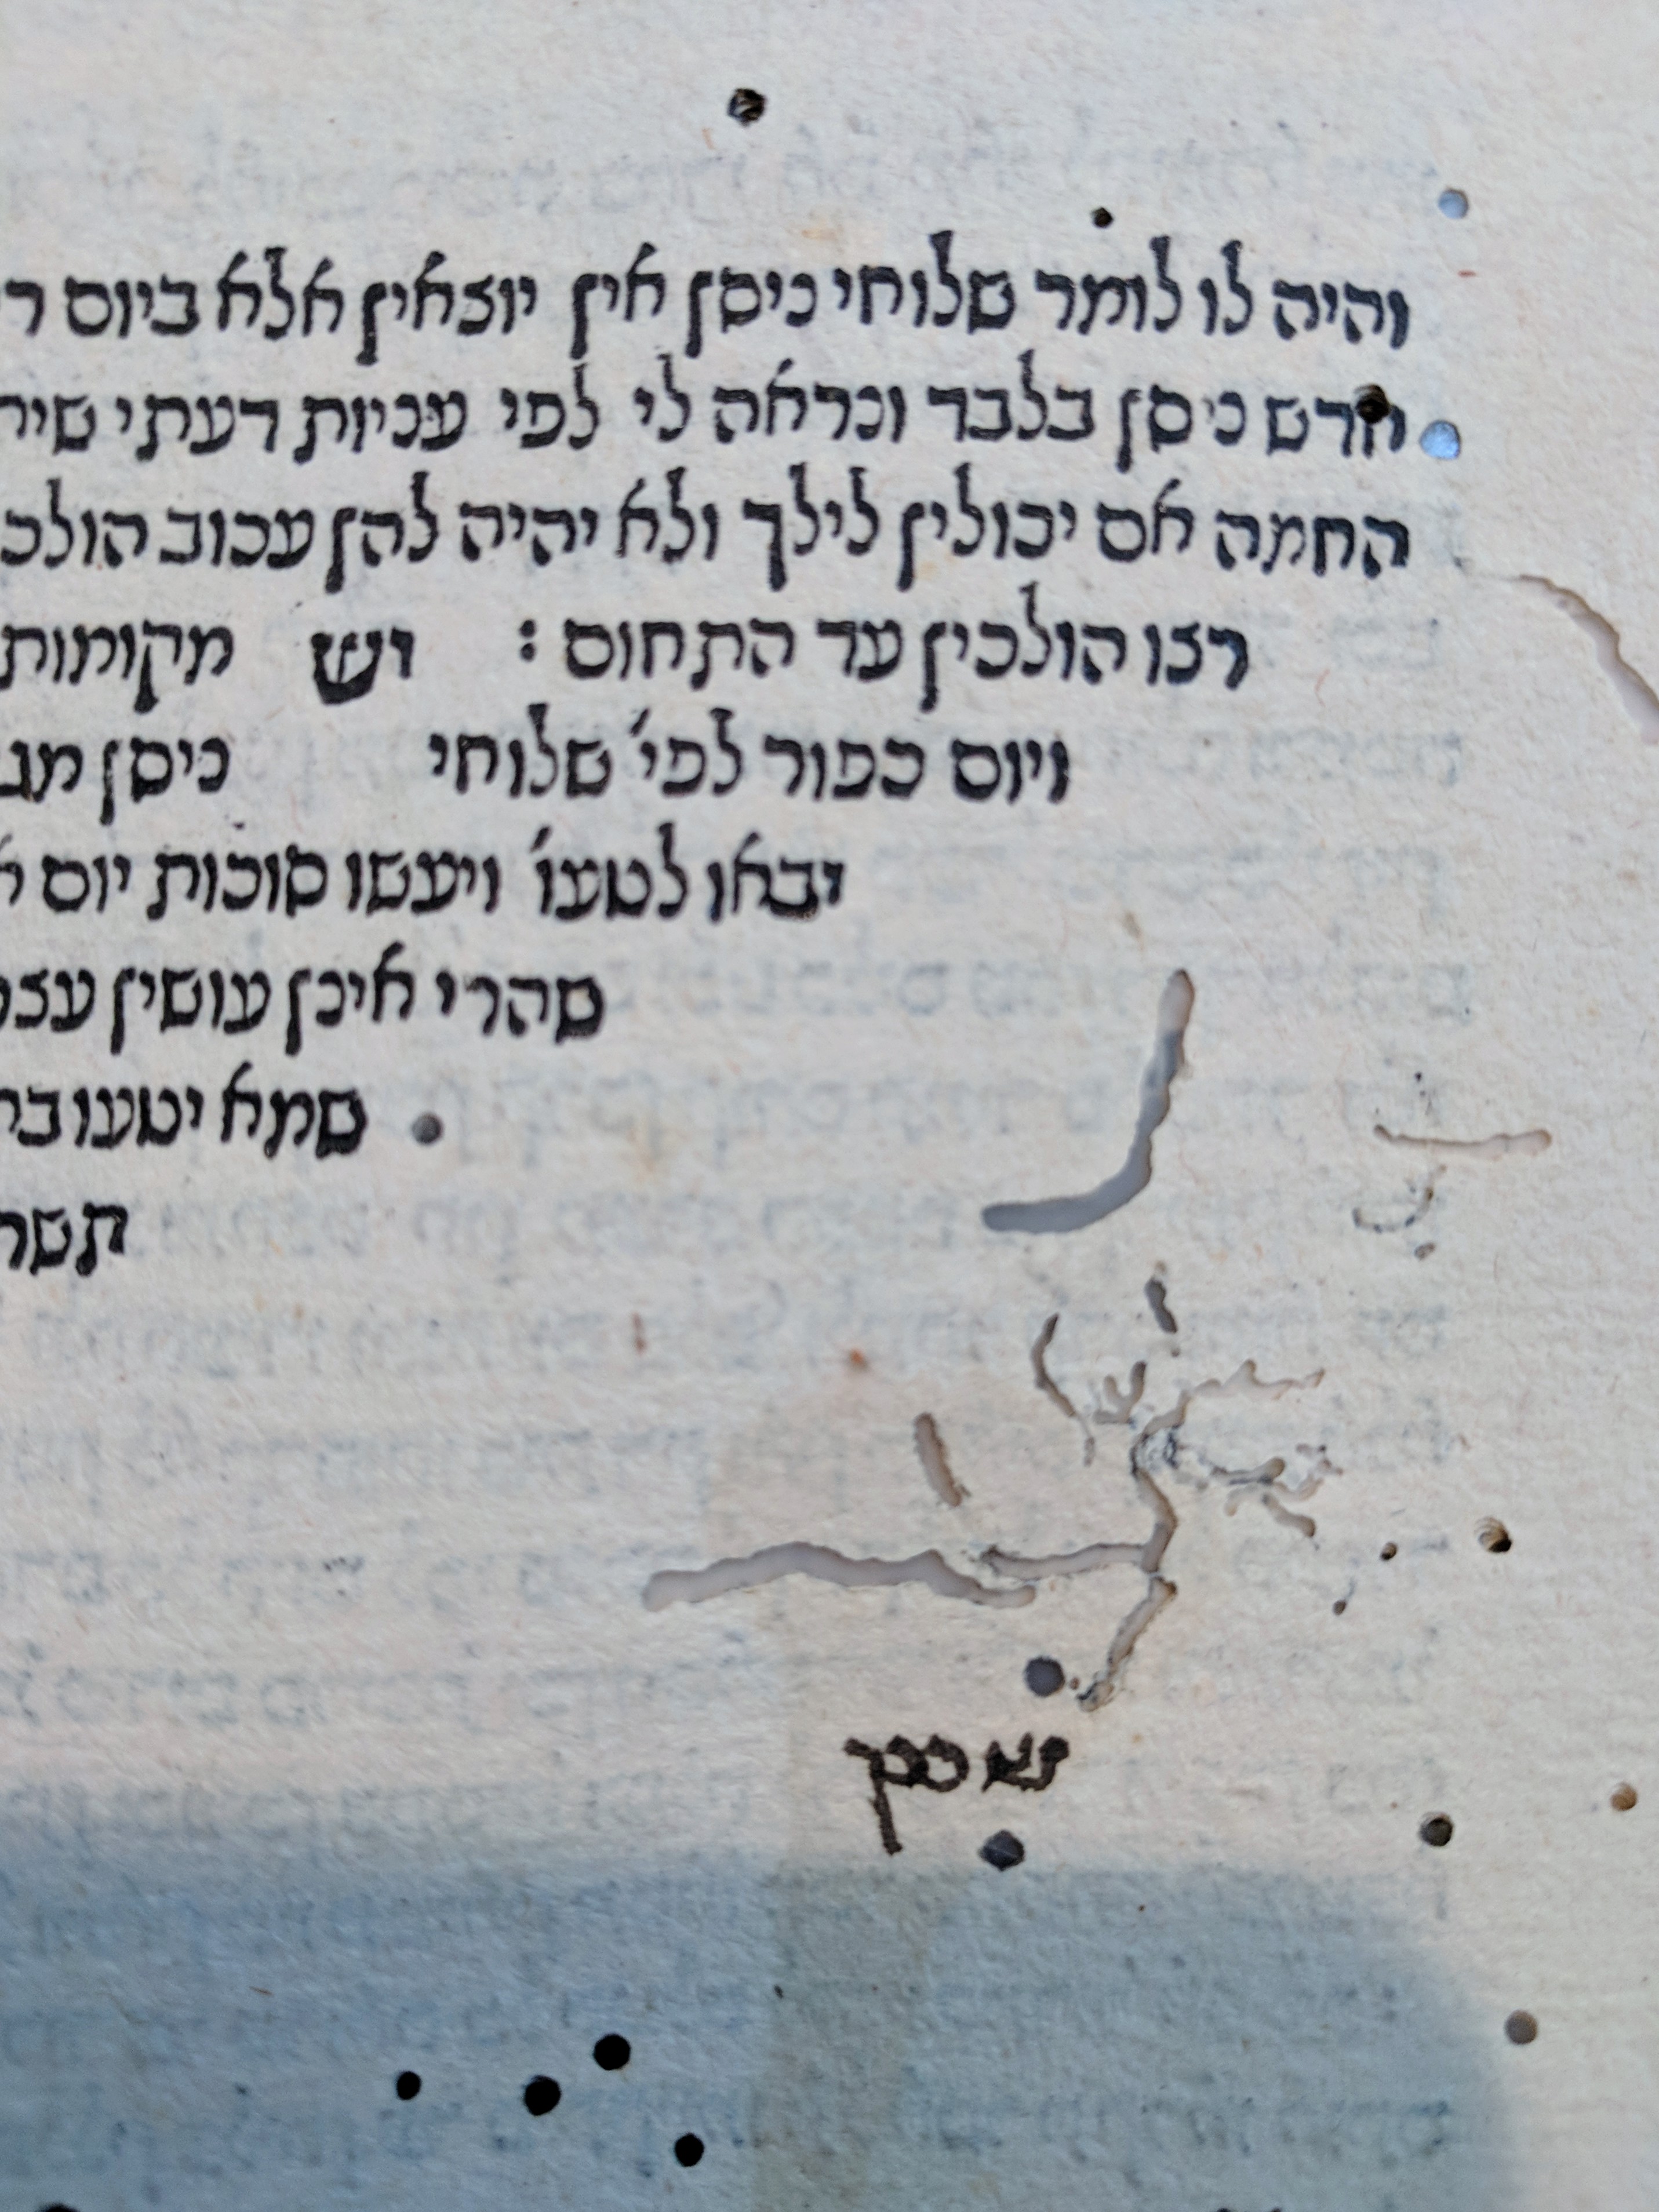 והיה לו לומר שלוחי ניסן אין יוצאין אלא ביום ר
חדש ניסן בלבד ונראה לי לפי עניות דעתי שיר
החמה אם יכולין לילך ולא יהיה להן עכוב הולכ
רצו הולכין עד התחום : יש מקומות
ויום כפור לפי' שלוחי ניסן מג
יבאו לטעו' ויעשו סוכות יום א
שהרי אינן עושין עצמ
שמא יטעו בר
תשר